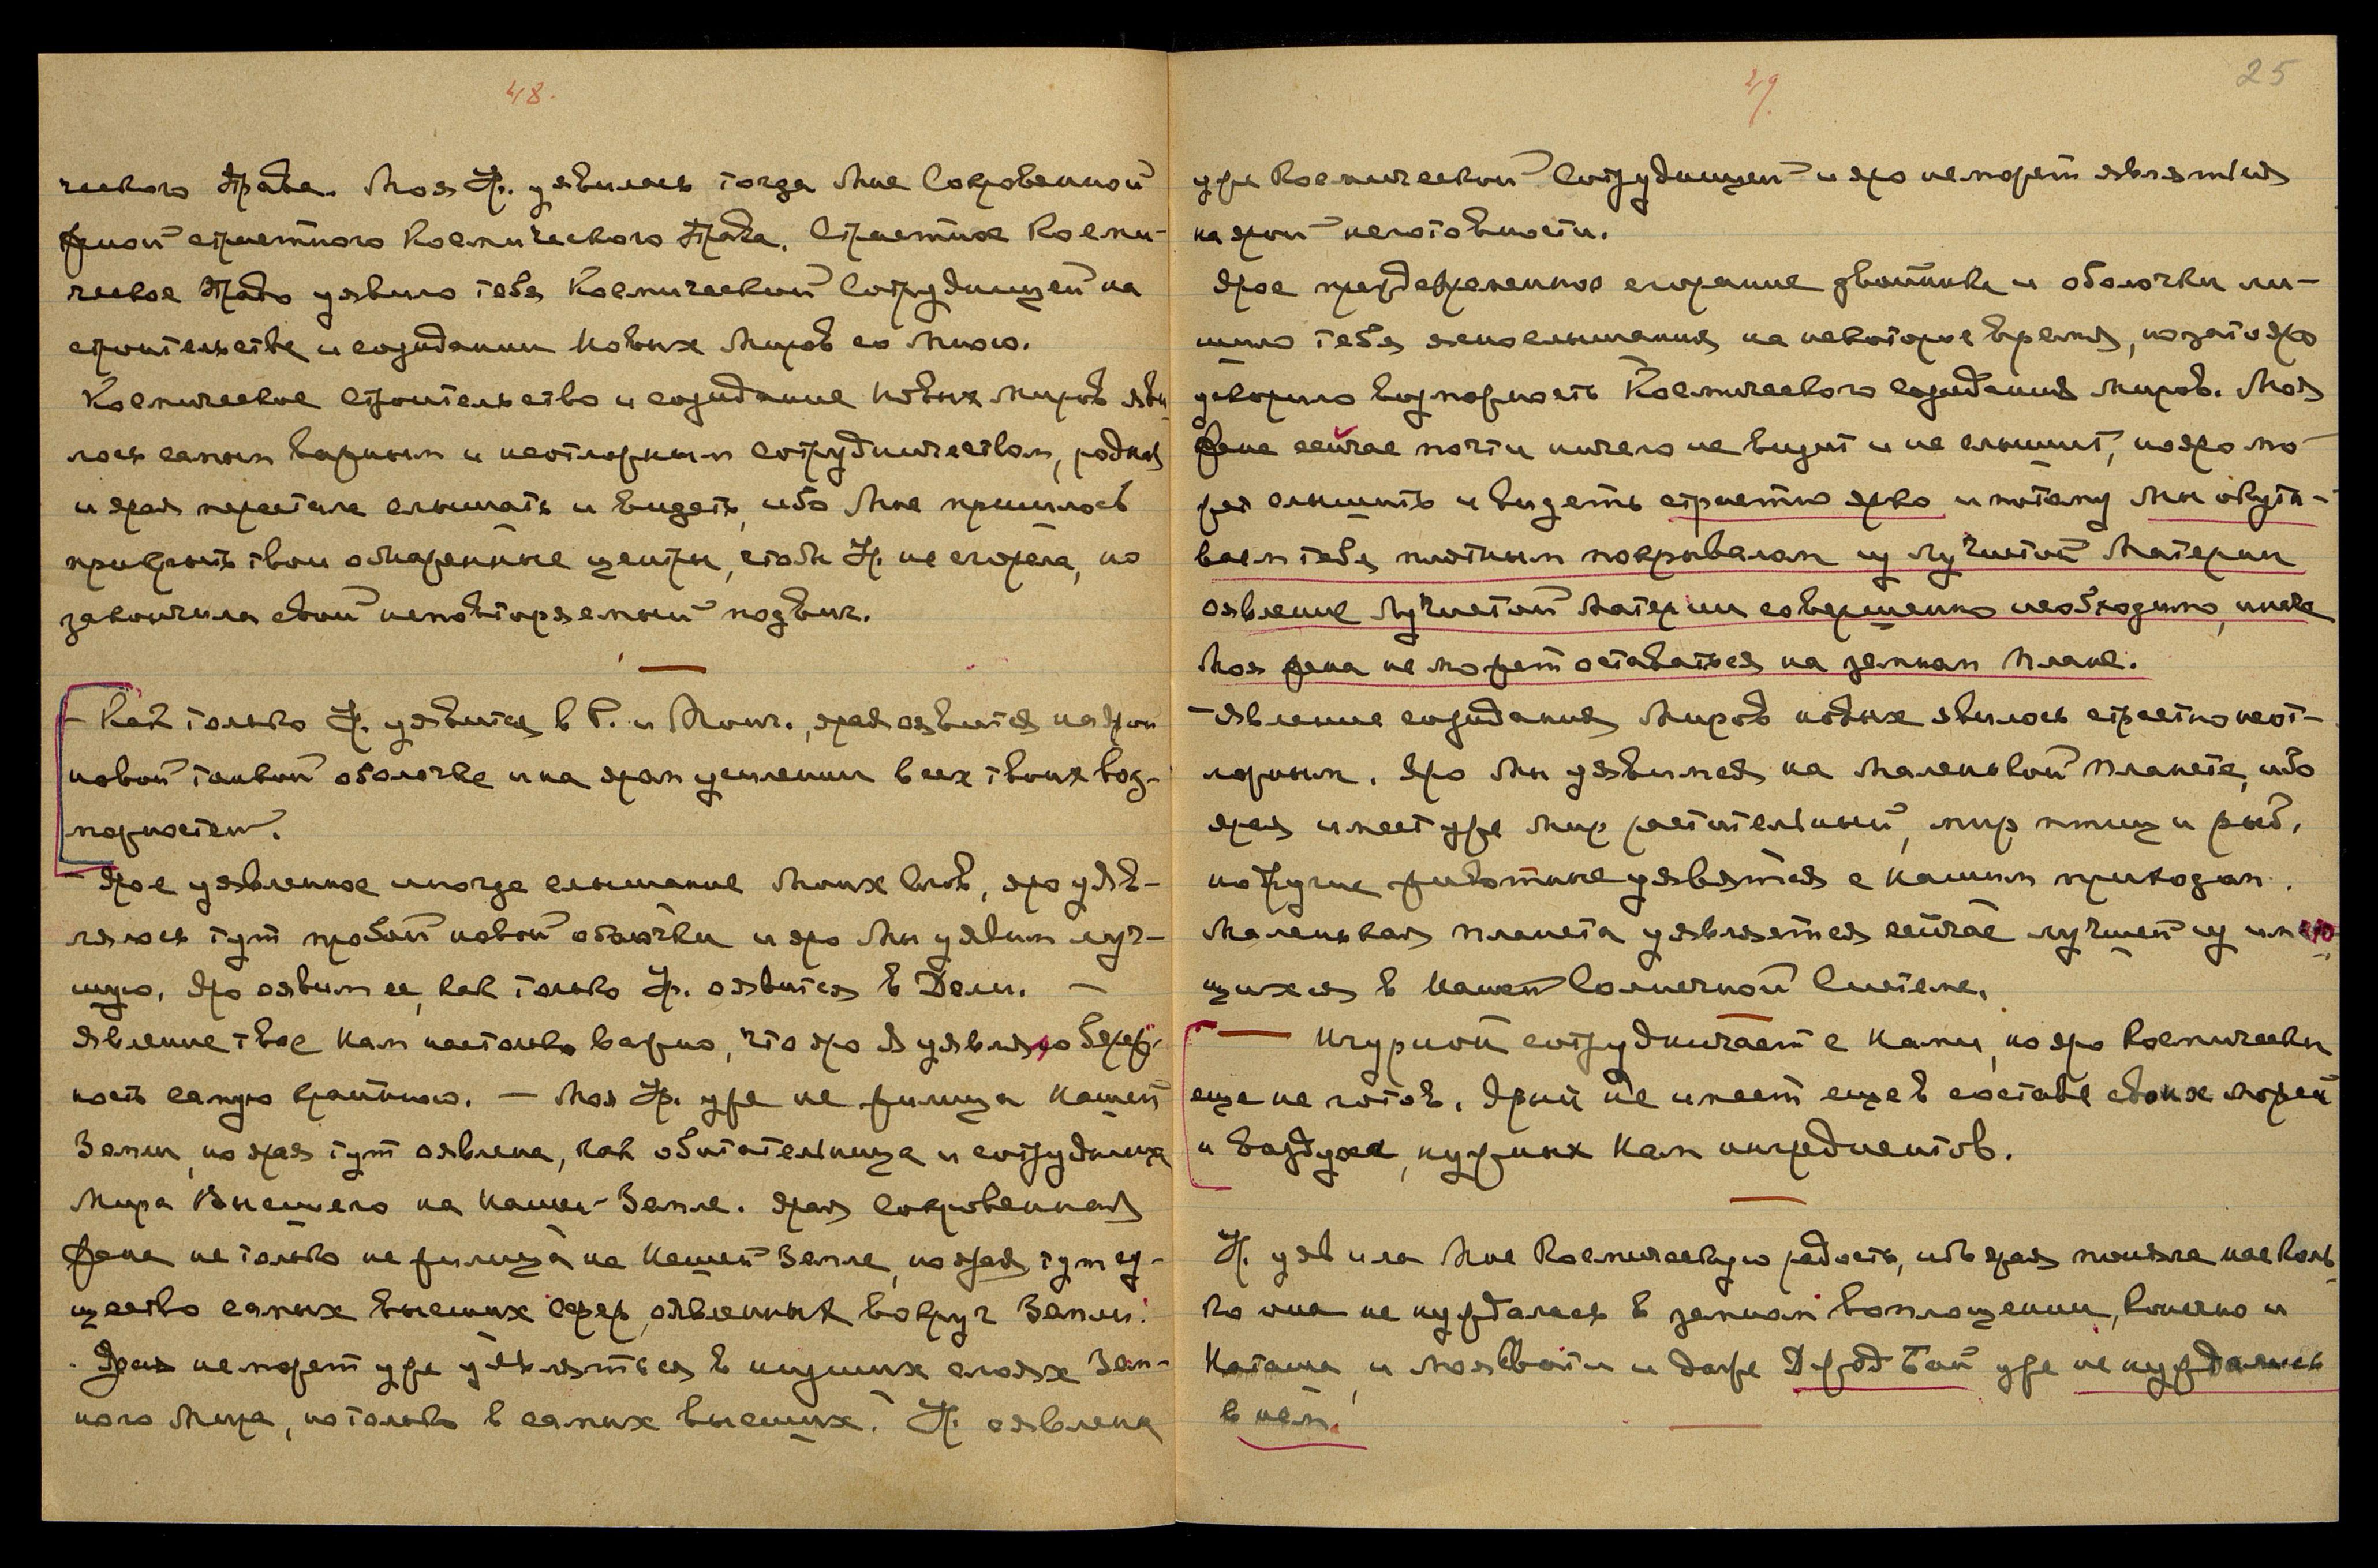 48.
ческого Права. Моя Ур. уявилась тогда Мне Сокровенной
женой страстного Космического Права. Страстное Косми-
ческое Право уявило тебя Космической Сотрудницей на
строительстве и созидании Новых Миров со Мною.
Космическое строительство и созидание Новых миров яви-
лось самым важным и неотложным сотрудничеством, родная
и ярая перестала слышать и видеть, ибо Мне пришлось
прикрыть твои обнаженные центры, чтобы Ур. не сгорела, но
закончила свой неповторяемый подвиг.
– Как только Ур. уявится в Р. и Монг., ярая оявится на ярой
новой тонкой оболочке и на яром усилении всех твоих воз-
можностей.
– Ярое уявленное иногда слышание Моих Слов, яро уяв-
лялось тут пробой новой оболочки и яро Мы уявим луч-
шую. Яро оявим ее, как только Ур. оявится в Дели. –
явление твое Нам настолько важно, что яро Я уявляю береж-
ность самую крайнюю. – Моя Ур. уже не жилица нашей
Земли, но ярая тут оявлена, как обитательница и сотрудница
Мира Высшего на нашей Земле. Ярая Сокровенная
жена не только не жилица на нашей Земле, но ярая тут су-
щество самых высших сфер, оявленных вокруг Земли.
Ярая не может уже уявляться в низших слоях Зем-
ного Мира, но только в самых высших. Ур. оявлена
49. 25
уже Космической Сотрудницей и яро не может являться
на ярой неготовности.
Ярое преждевременное сгорание двойника и оболочки ли-
шило тебя яснослышания на некоторое время, но зато яро
ускорило возможность Космического созидания миров. Моя
жена сейчас почти ничего не видит и не слышит, но яро мо-
жет слышать и видеть страстно ярко и потому Мы окуты-
ваем тебя плотным покрывалом из Лучистой Материи
оявление Лучистой Материи совершенно необходимо, иначе
Моя жена не может оставаться на земном плане.
– явление созидания Миров новых явилось страстно неот-
ложным. Яро Мы уявимся на маленькой планете, ибо
ярая имеет уже мир растительный, мир птиц и рыб,
но другие животные уявятся с нашим приходом.
Маленькая планета уявляется сейчас лучшей из имею-
щихся в нашей Солнечной Системе.
– Ингурион сотрудничает с Нами, но яро Космически
еще не готов. Ярый не имеет еще в составе своих морей
и воздухе, нужных Нам ингредиентов.
Ур. уявила Мне Космическую радость, ибо ярая поняла насколь-
ко она не нуждалась в земном воплощении, конечно и
Наташа, и Моя Святи и даже Дждд Бай уже не нуждались
в нем.